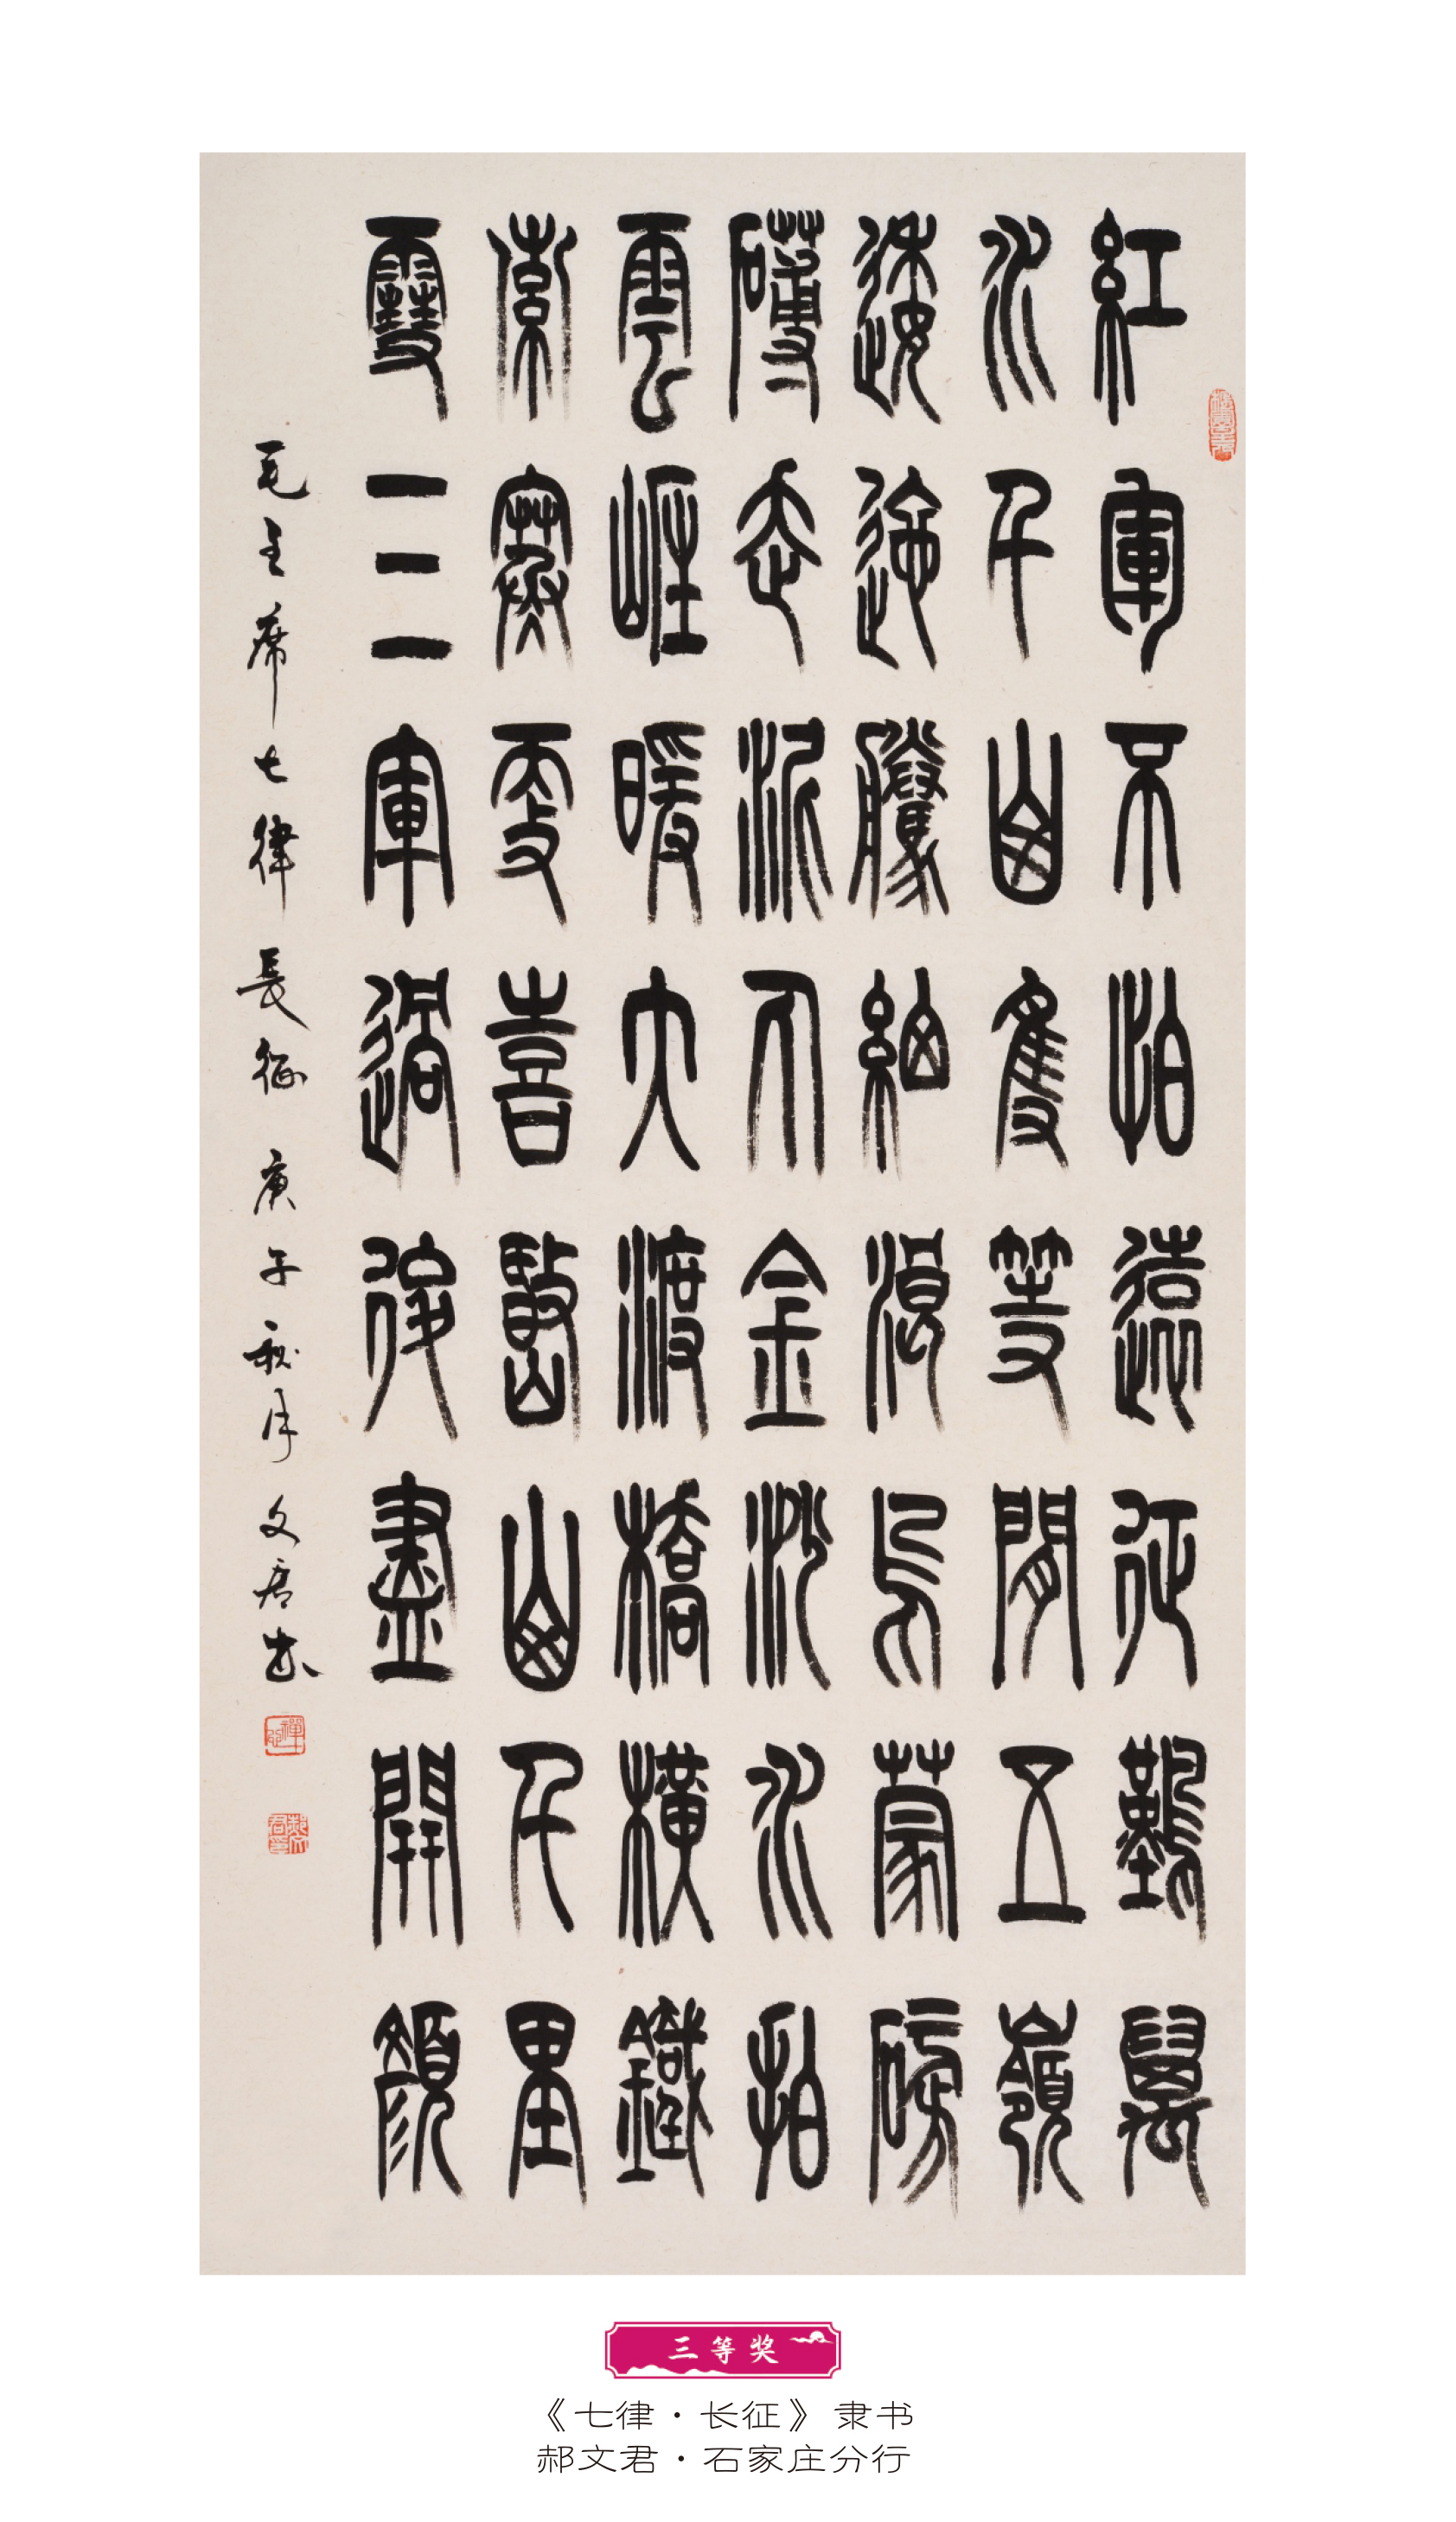 紅軍不怕遠征難萬
水千山隻等閒五嶺
逶迤騰細浪烏蒙磅
礴走泥丸金沙水拍
雲崖暖大渡橋橫鐵
索寒更喜岷山千里
雪三軍過後盡開顏
毛主席七律長征 庚子秋月 文君书
三等奖
《七律·长征》隶书
郝文君·石家庄分行